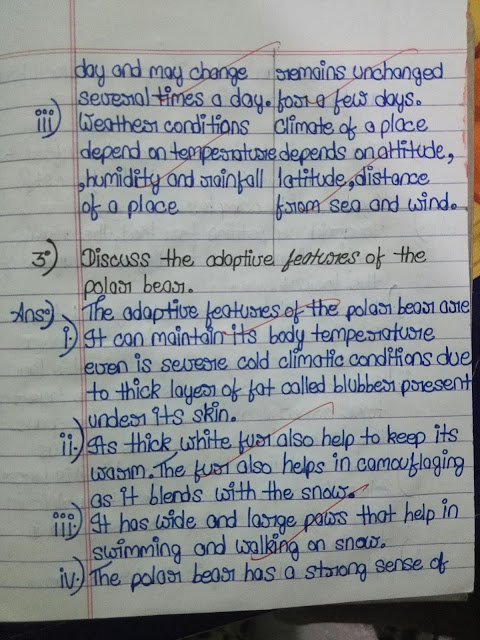 day and may change remains unchanged
several times a day. for a few days.
iii) Weather conditions climate of a place
depend on temperature depends on attitude,
,humidity and rainfall latitude, distance
of a place from sea and wind.
3.) Discuss the adaptive features of the
polar bear.
Ans.) The adaptive features of the polar bear are
i.) It can maintain its body temperature
even is severe cold climatic conditions due
to thick layer of fat called blubber present
under its skin.
ii.) Its thick white fur also help to keep its
warm. The fur also helps in camouflaging
as it blends with the snow.
iii.) It has wide and large paws that help in
swimming and walking on snow.
iv.) The polar bear has a strong sense of